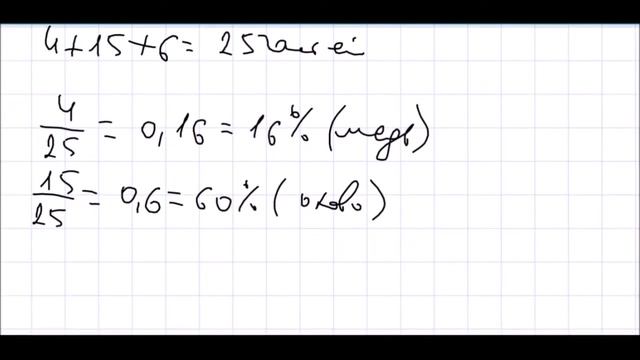 4+15+6= 25 частей
4/25 = 0,16 = 16% (медь)
15/25 = 0,6 = 60% (олово)